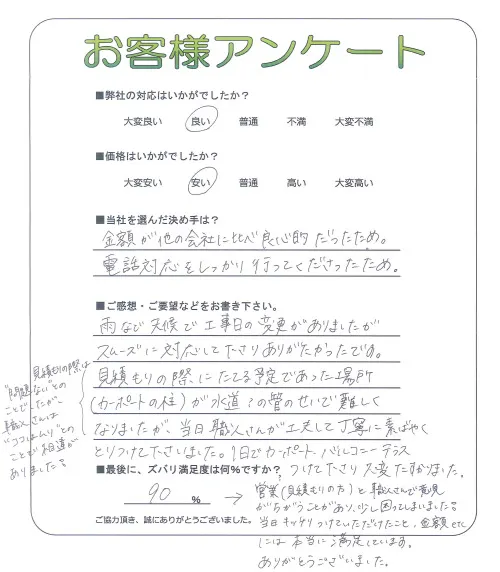 お客様アンケート
■弊社の対応はいかがでしたか？
大変良い 良い 普通 不満 大変不満
■価格はいかがでしたか？
大変安い 安い 普通 高い 大変高い
■当社を選んだ決め手は？
金額が他の会社に比べ良心的だったため。
電話対応をしっかり行ってくださったため。
■ご感想・ご要望などをお書き下さい。
雨など天候で工事日の変更がありましたが
スムーズに対応して下さりありがたかったです。
見積もりの際、にたてる予定であった場所
(カーポートの柱)が水道？の管のせいで難しく
なりましたが、当日職人さんが工夫して丁寧に素ばやく
とりつけて下さいました。1日でカーポート、バルコニーテラス
つけて下さり大変たすかりました。
見積もりの際は
"問題ない"との
ことでしたが、
職人さんは
"ココはムリ"との
ことで相違が
ありました💦
■最後に、ズバリ満足度は何％ですか？
90 %
→ 営業(見積もりの方)と職人さんで意見
がちがうことがあり、少し困ってしまいました💦
当日キッチリつけていただけたこと、金額etc
には本当に満足しています。
ありがとうございました。
ご協力頂き、誠にありがとうございました。